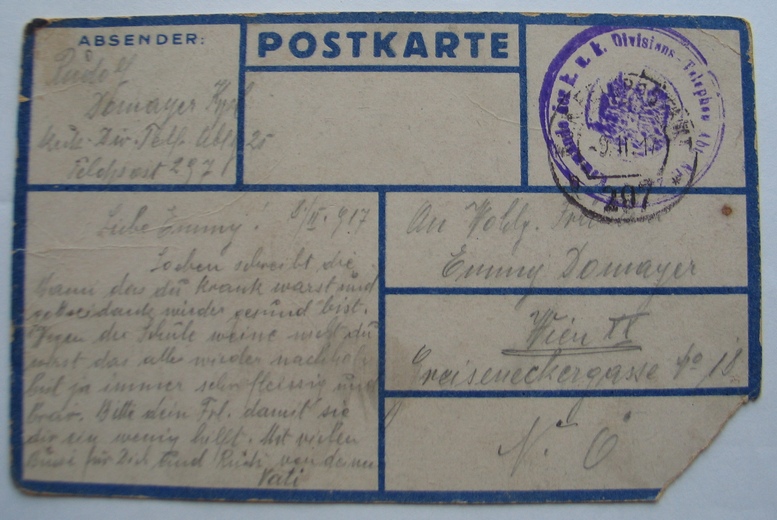 ABSENDER:
Rudolf
Domayer
Div. Telf. Abt. 25
Feldpost 297
POSTKARTE
k. u. k. Divisions-Telephon Abt.
297
Liebe Emmy! 8/II. 917
Soeben schreibt die
Mami das du krank warst und
gottseidank wieder gesund bist.
Wegen der Schule weine nicht du
wirst das alles wieder nachholen
bist ja immer sehr fleissig und
brav. Bitte dein Frl. damit sie
dir ein wenig hilft. Mit vielen
Bussi für Dich und von deinem
Vati
An Wohlg.
Emmy Domayer
Wien XX
Greiseneckergasse No 18
N. Ö